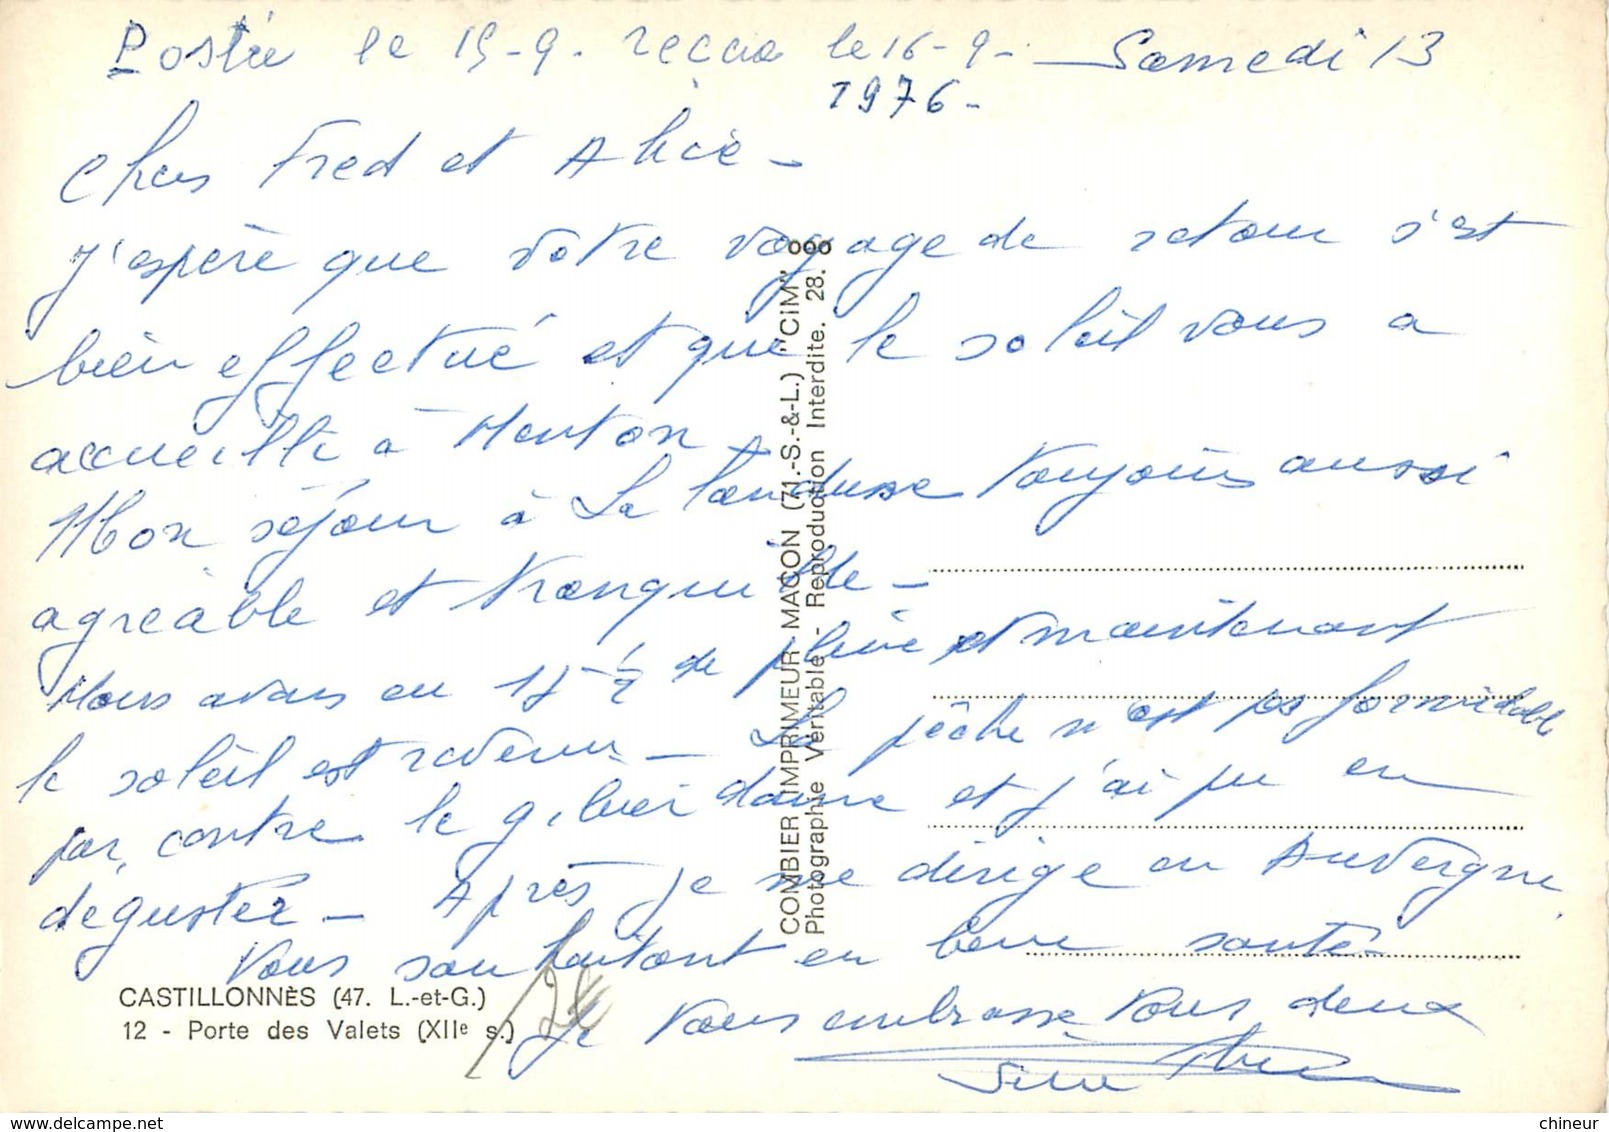 Postée le 15-9. reçue le 16-9- Samedi 13
1976-
Chers Fred et Alice -
J'espère que votre voyage de retour s'est
bien effectué et que le soleil vous a
accueilli à Menton -
Mon séjour à La toujours aussi
agréable et tranquille -
Nous avons eu 1j 1/2 de pluie et maintenant
le soleil est revenu - La pêche n'est pas formidable
par contre le gibier donne et j'ai pu en
deguster - Après je me dirige en Auvergne.
Vous souhaitant en bonne santé -
Je vous embrasse tous deux
COMBIER IMPRIMEUR MACON (71.-S.-&-L.) "CIM"
Photographie Véritable - Reproduction Interdite. 28.
CASTILLONNÈS (47. L.-et-G.)
12 - Porte des Valets (XIIe s.)
chineur